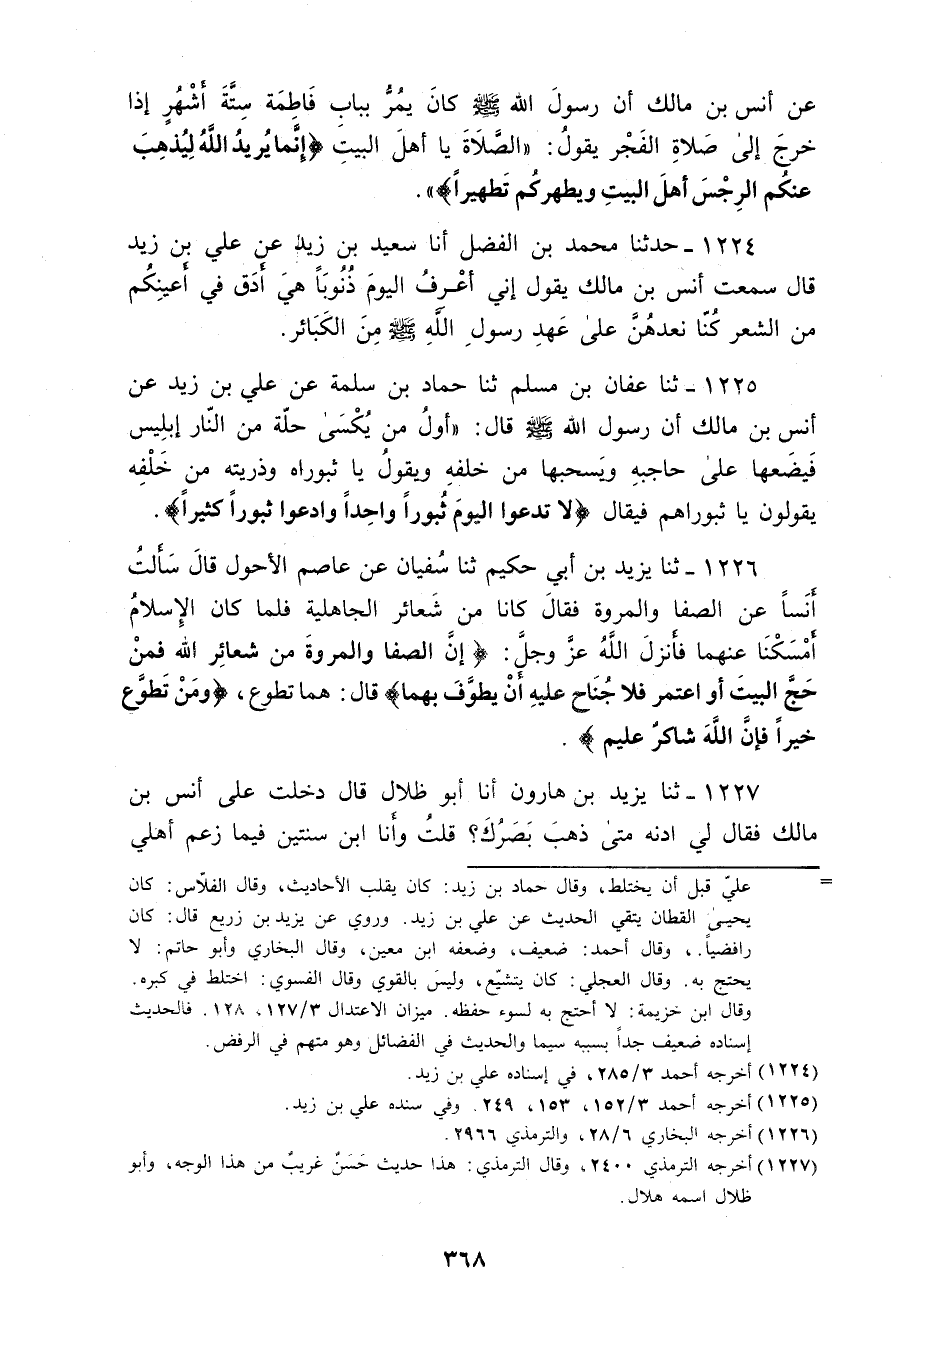 عن أنس بن مالك أن رسولَ الله ﷺ كانَ يمُرُّ ببابِ فَاطِمَة سِتَّةَ أَشْهُرٍ إذا
خرجَ إلىٰ صَلاةِ الفَجْر يقولُ: «الصَّلَاةَ يا أهلَ البيتِ ﴿إنَّما يُريدُ اللَّهُ لِيُذهِبَ
عنكُم الرِجْسَ أهلَ البيتِ ويطهركُم تَطهيراً﴾».
١٢٢٤ ـ حدثنا محمد بن الفضل أنا سعيد بن زيد عن علي بن زيد
قال سمعت أنس بن مالك يقول إني أعْرِفُ اليومَ ذُنُوبَاً هيَ أَدَق في أَعينِكُم
من الشعر كُنّا نعدهُنَّ علىٰ عَهدِ رسولِ اللَّهِ ﷺ مِنَ الكَبَائر.
١٢٢٥ ـ ثنا عفان بن مسلم ثنا حماد بن سلمة عن علي بن زيد عن
أنس بن مالك أن رسول الله ﷺ قال: «أولُ من يُكْسَىٰ حلّة من النّار إبليس
فَيضَعها علىٰ حاجبهِ ويَسحبها من خلفهِ ويقولُ يا ثبوراه وذريته من خَلْفِه
يقولون يا ثبوراهم فيقال ﴿لا تدعوا اليومَ ثُبوراً واحِداً وادعوا ثبوراً كثيراً﴾.
١٢٢٦ ـ ثنا يزيد بن أبي حكيم ثنا سُفيان عن عاصم الأحول قالَ سَأَلتُ
أَنَساً عن الصفا والمروة فقالَ كانا من شَعائر الجاهلية فلما كان الإِسلامُ
أَمْسَكْنَا عنهما فأَنزلَ اللَّهُ عزَّ وجلَّ: ﴿ إنَّ الصفا والمروةَ من شعائِر الله فمنْ
حَجَّ البيتَ أو اعتمر فلا جُنَاح عليهِ أَنْ يطوَّفَ بهما﴾ قال: هما تطوع، ﴿ومَنْ تَطوَّع
خيراً فإنَّ اللَّهَ شاكرٌ عليم ﴾ .
١٢٢٧ ـ ثنا يزيد بن هارون أنا أبو ظلال قال دخلت على أنس بن
مالك فقال لي ادنه متىٰ ذهبَ بَصَرُكَ؟ قلتُ وأَنا ابن سنتين فيما زعم أهلي
= عليّ قبل أن يختلط، وقال حماد بن زيد: كان يقلب الأحاديث، وقال الفلّاس: كان
يحيىٰ القطان يتقي الحديث عن علي بن زيد. وروي عن يزيد بن زريع قال: كان
رافضياً.، وقال أحمد: ضعيف، وضعفه ابن معين، وقال البخاري وأبو حاتم: لا
يحتج به. وقال العجلي: كان يتشيّع، وليسَ بالقوي وقال الفسوي: اختلط في كبره.
وقال ابن خزيمة: لا أحتج به لسوء حفظه. ميزان الاعتدال ١٢٧/٣، ١٢٨. فالحديث
إسناده ضعيف جداً بسببه سيما والحديث في الفضائل وهو متهم في الرفض.
(١٢٢٤) أخرجه أحمد ٢٨٥/٣، في إسناده علي بن زيد.
(١٢٢٥) أخرجه أحمد ١٥٢/٣، ١٥٣، ٢٤٩. وفي سنده علي بن زيد.
(١٢٢٦) أخرجه البخاري ٢٨/٦، والترمذي ٢٩٦٦.
(١٢٢٧) أخرجه الترمذي ٢٤٠٠، وقال الترمذي: هذا حديث حَسَنٌ غريبٌ من هذا الوجه، وأبو
ظلال اسمه هلال.
٣٦٨